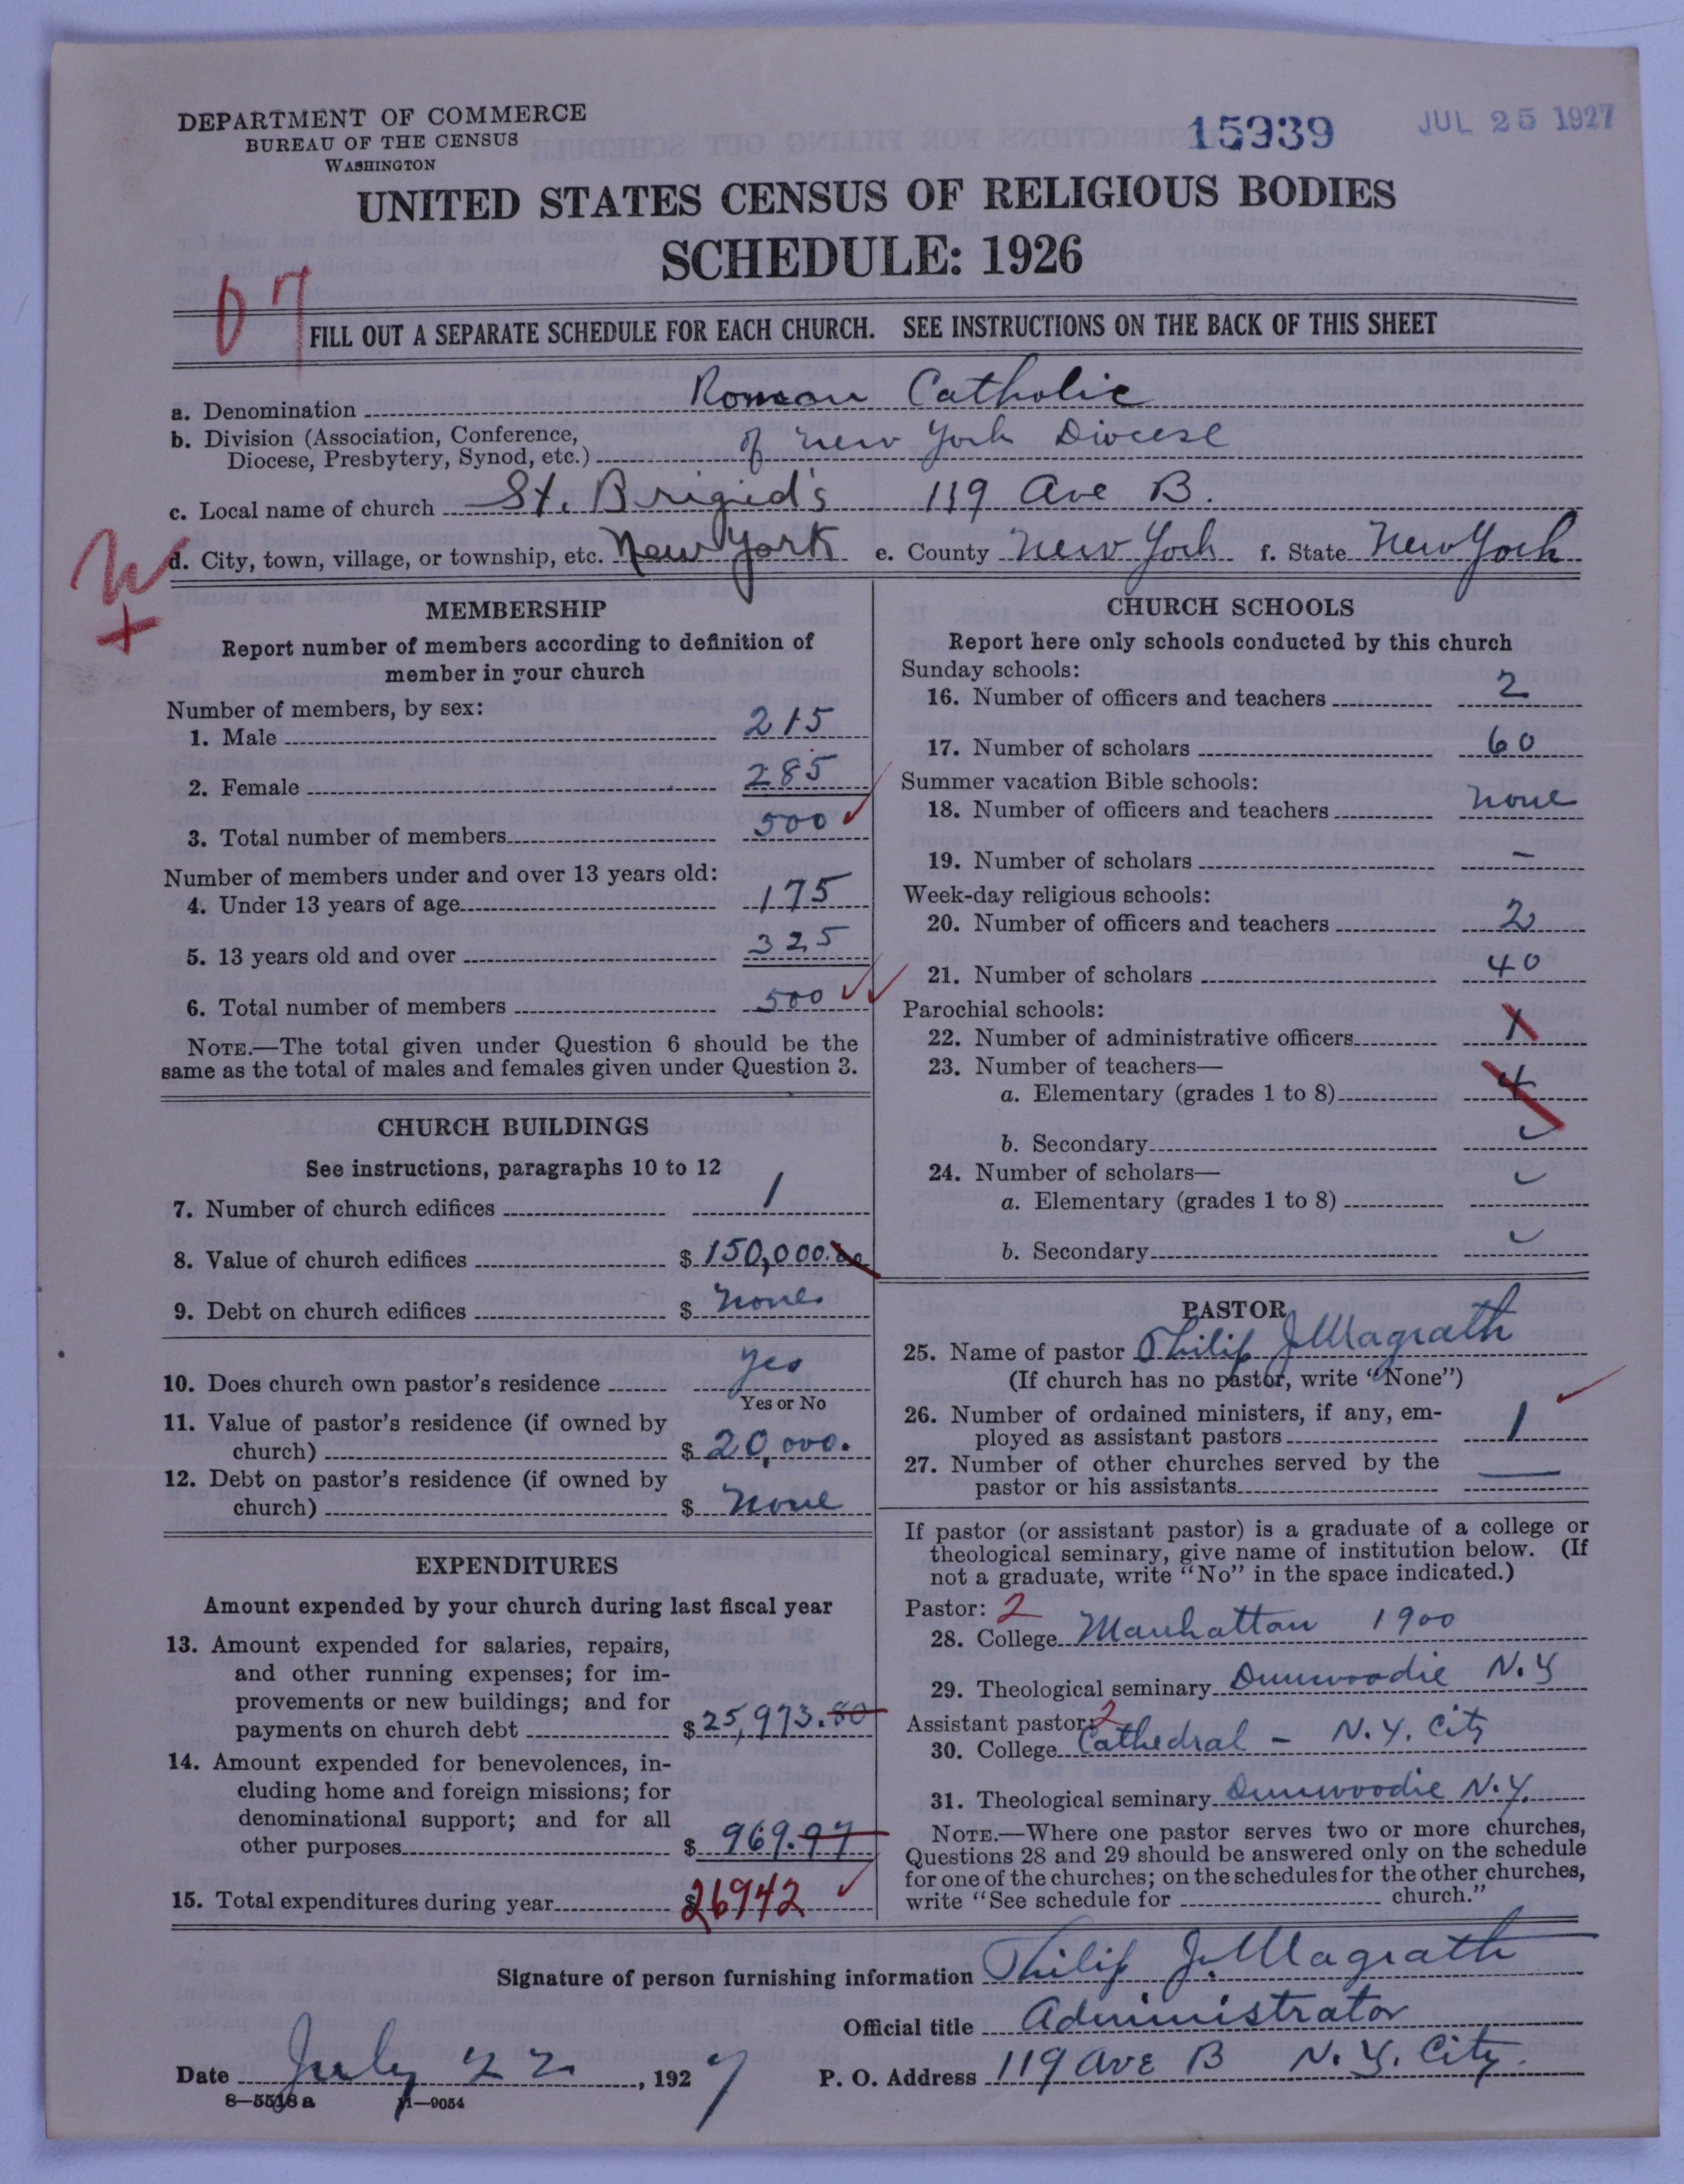 DEPARTMENT OF COMMERCE
BUREAU OF THE CENSUS
WASHINGTON
15939
JUL 25 1927
UNITED STATES CENSUS OF RELIGIOUS BODIES
SCHEDULE: 1926
07
FILL OUT A SEPARATE SCHEDULE FOR EACH CHURCH. SEE INSTRUCTIONS ON THE BACK OF THIS SHEET
a. Denomination Roman Catholic
b. Division (Association, Conference,
Diocese, Presbytery, Synod, etc.) of New York Diocese
c. Local name of church St. Brigid's 119 Ave B.
d. City, town, village, or township, etc. New York e. County New York f. State New York
MEMBERSHIP
Report number of members according to definition of
member in your church
Number of members, by sex:
1. Male 215
2. Female 285
3. Total number of members 500
Number of members under and over 13 years old:
4. Under 13 years of age 175
5. 13 years old and over 325
6. Total number of members 500
NOTE.—The total given under Question 6 should be the
same as the total of males and females given under Question 3.
CHURCH BUILDINGS
See instructions, paragraphs 10 to 12
7. Number of church edifices 1
8. Value of church edifices $ 150,000.00
9. Debt on church edifices $ none.
10. Does church own pastor's residence yes
Yes or No
11. Value of pastor's residence (if owned by
church) $ 20,000.
12. Debt on pastor's residence (if owned by
church) $ none
EXPENDITURES
Amount expended by your church during last fiscal year
13. Amount expended for salaries, repairs,
and other running expenses; for im-
provements or new buildings; and for
payments on church debt $ 25,973.80
14. Amount expended for benevolences, in-
cluding home and foreign missions; for
denominational support; and for all
other purposes $ 969.97
15. Total expenditures during year $ 26942
CHURCH SCHOOLS
Report here only schools conducted by this church
Sunday schools:
16. Number of officers and teachers 2
17. Number of scholars 60
Summer vacation Bible schools:
18. Number of officers and teachers none
19. Number of scholars –
Week-day religious schools:
20. Number of officers and teachers 2
21. Number of scholars 40
Parochial schools:
22. Number of administrative officers 1
23. Number of teachers—
a. Elementary (grades 1 to 8) 4
b. Secondary
24. Number of scholars—
a. Elementary (grades 1 to 8)
b. Secondary
PASTOR
25. Name of pastor Philip J Magrath
(If church has no pastor, write "None")
26. Number of ordained ministers, if any, em-
ployed as assistant pastors 1
27. Number of other churches served by the
pastor or his assistants —
If pastor (or assistant pastor) is a graduate of a college or
theological seminary, give name of institution below. (If
not a graduate, write "No" in the space indicated.)
Pastor: 2
28. College Manhattan 1900
29. Theological seminary Dunwoodie N.Y
Assistant pastor: 2
30. College Cathedral – N.Y. City
31. Theological seminary Dunwoodie N.Y.
NOTE.—Where one pastor serves two or more churches,
Questions 28 and 29 should be answered only on the schedule
for one of the churches; on the schedules for the other churches,
write "See schedule for church."
Signature of person furnishing information Philip J. Magrath
Official title Administrator
Date July 22, 1927 P. O. Address 119 Ave B N.Y. City.
8—5518 a 11—9054